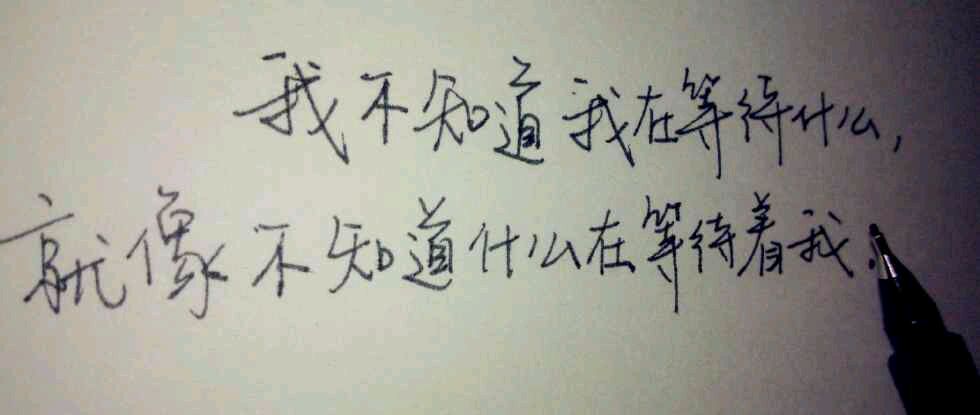 我不知道我在等待什么,
就像不知道什么在等待着我.